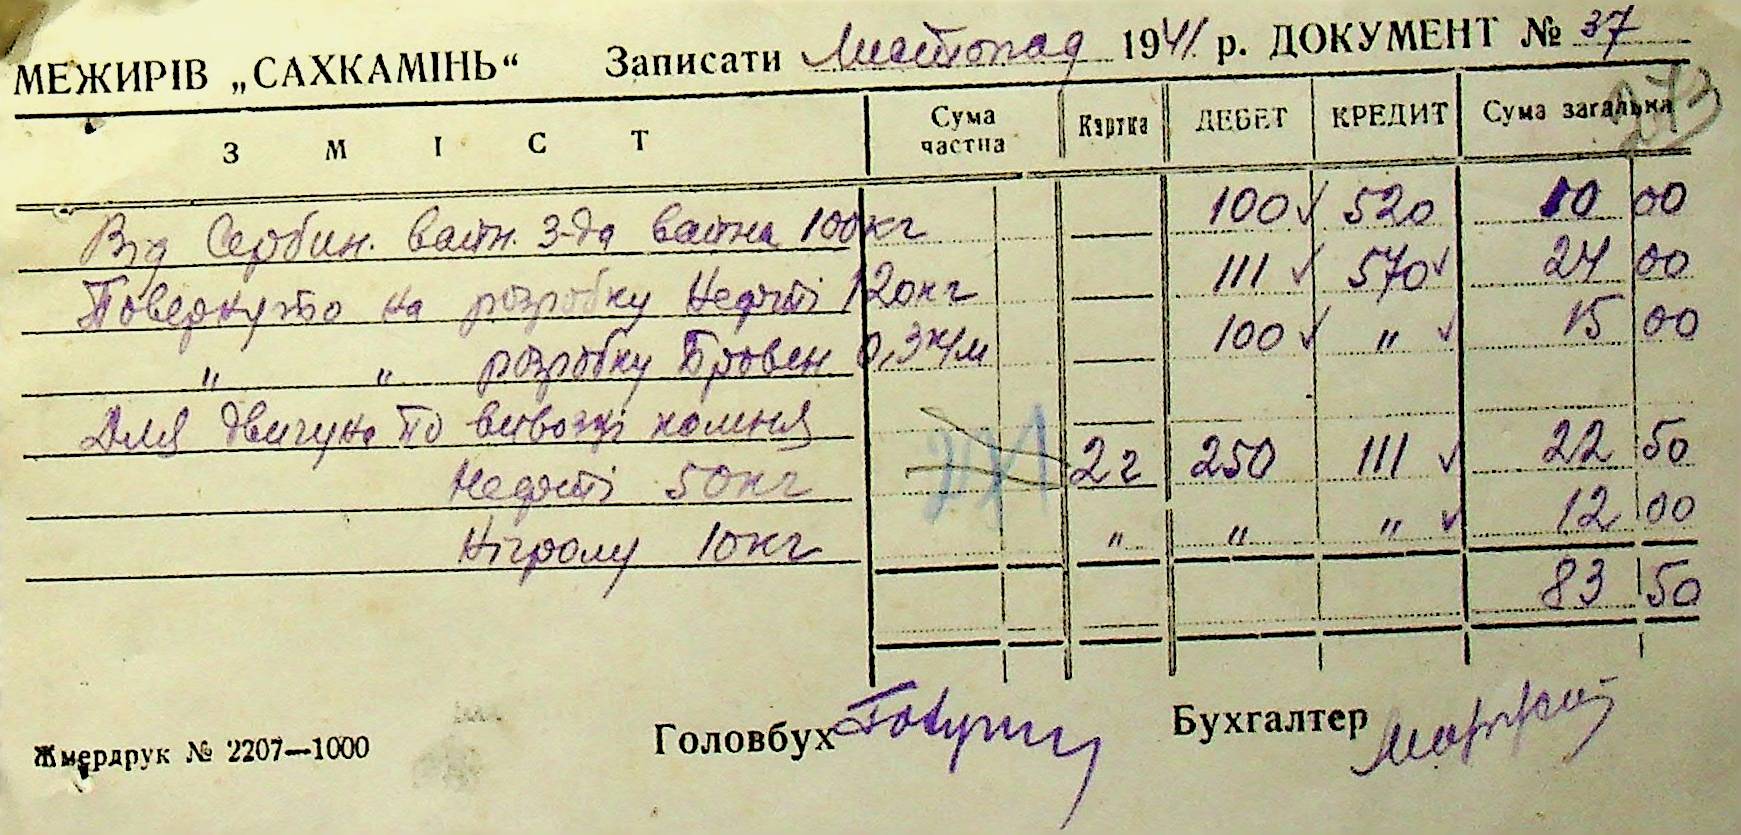 МЕЖИРІВ „САХКАМІНЬ“ Записати Листопад 1941 р. ДОКУМЕНТ № 37
273
ЗМІСТ Сума частна Картка ДЕБЕТ КРЕДИТ Сума загальна
Від Сербин. вапн. з-да вапна 100 кг — 100 ✓ 520 10 00
Повернуто на розробку Нефті 120 кг — 111 ✓ 570 ✓ 24 00
" " розробку Бровен. 0,3 к/м — 100 ✓ " ✓ 15 00
Для двигуна по вивозці каменя —
Нефті 50 кг 22 250 111 ✓ 22 50
Нігролу 10 кг " " " ✓ 12 00
83 50
Головбух Бухгалтер
Жмердрук № 2207—1000